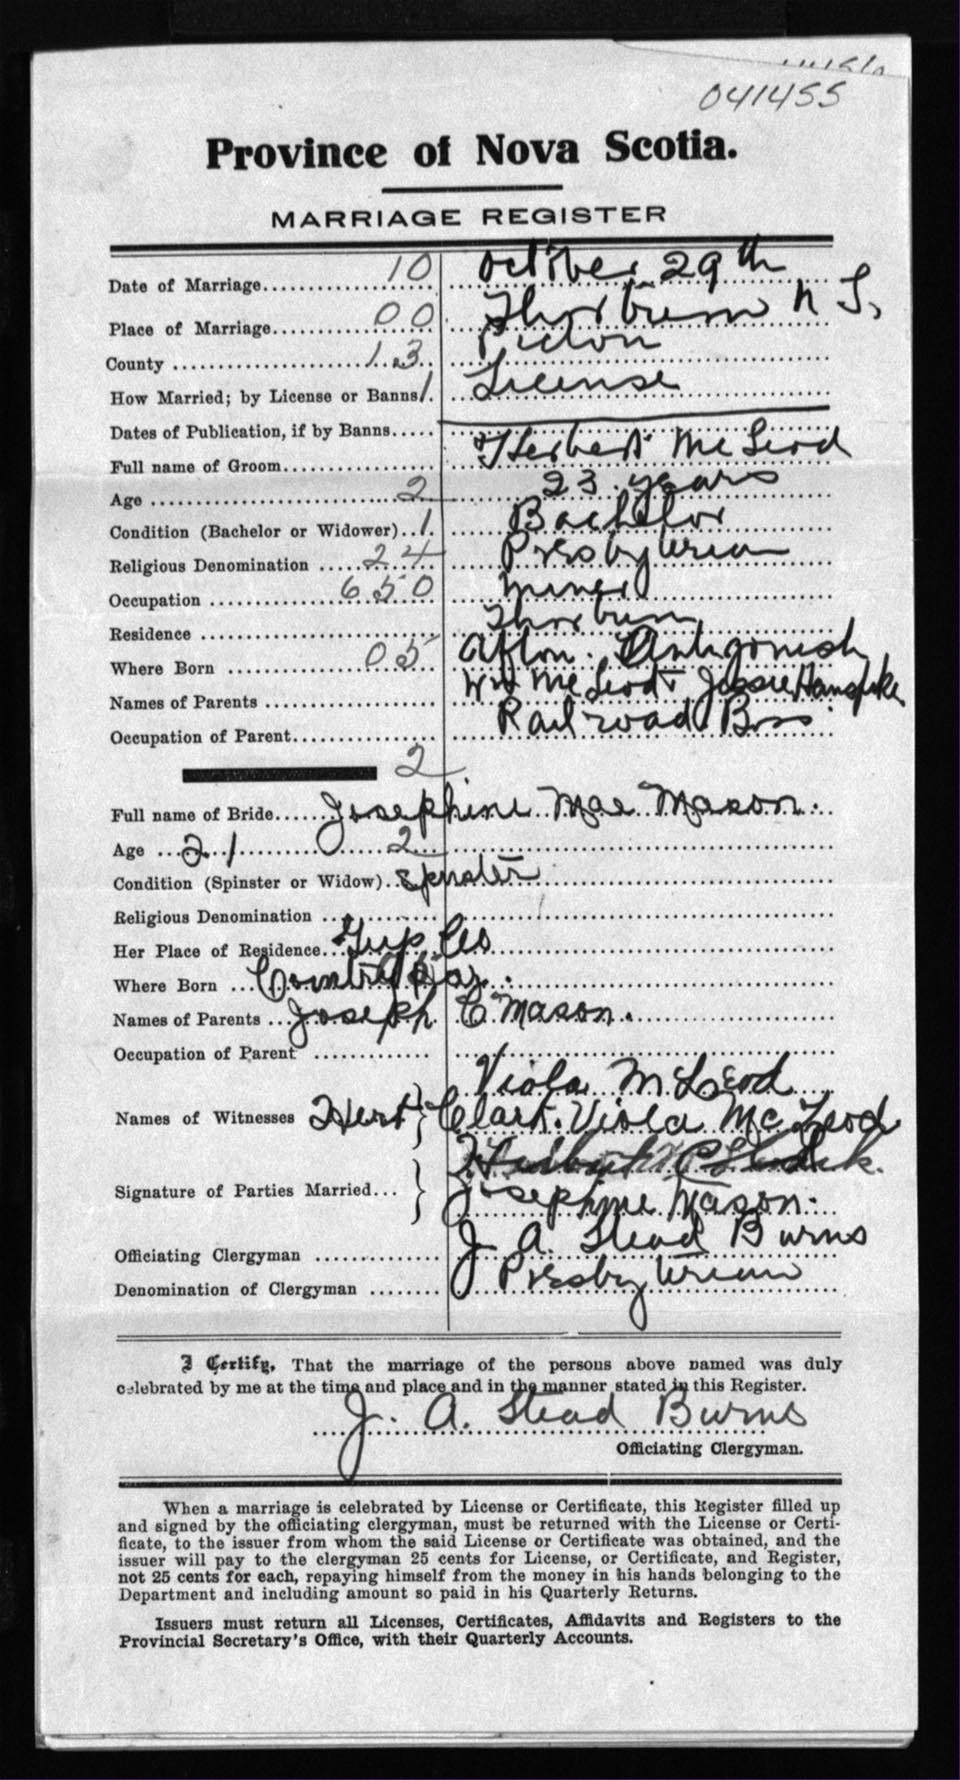 041455
Province of Nova Scotia.
MARRIAGE REGISTER
Date of Marriage 10 October 29th
Place of Marriage 00 Thorburn N S,
County 13 Pictou
How Married; by License or Banns 1. License
Dates of Publication, if by Banns
Full name of Groom Herbert McLeod
Age 2 23 years
Condition (Bachelor or Widower) 1. Bachelor
Religious Denomination 24 Presbyterian
Occupation 650 Miner
Residence Thorburn
Where Born 05 Afton. Antigonish
Names of Parents Wm McLeod + Jessie
Occupation of Parent Railroad Boss
2
Full name of Bride Josephine Mae Mason.
Age 21 2
Condition (Spinster or Widow) Spinster
Religious Denomination
Her Place of Residence Guys Co
Where Born Country Har.
Names of Parents Joseph C Mason.
Occupation of Parent
Viola McLeod
Names of Witnesses Herb Clark. Viola McLeod
Signature of Parties Married
Josephine Mason.
Officiating Clergyman J A. Stead Burns
Denomination of Clergyman Presbyterian
I Certify, That the marriage of the persons above named was duly
celebrated by me at the time and place and in the manner stated in this Register.
J. A. Stead Burns
Officiating Clergyman.
When a marriage is celebrated by License or Certificate, this Register filled up
and signed by the officiating clergyman, must be returned with the License or Certi-
ficate, to the issuer from whom the said License or Certificate was obtained, and the
issuer will pay to the clergyman 25 cents for License, or Certificate, and Register,
not 25 cents for each, repaying himself from the money in his hands belonging to the
Department and including amount so paid in his Quarterly Returns.
Issuers must return all Licenses, Certificates, Affidavits and Registers to the
Provincial Secretary's Office, with their Quarterly Accounts.